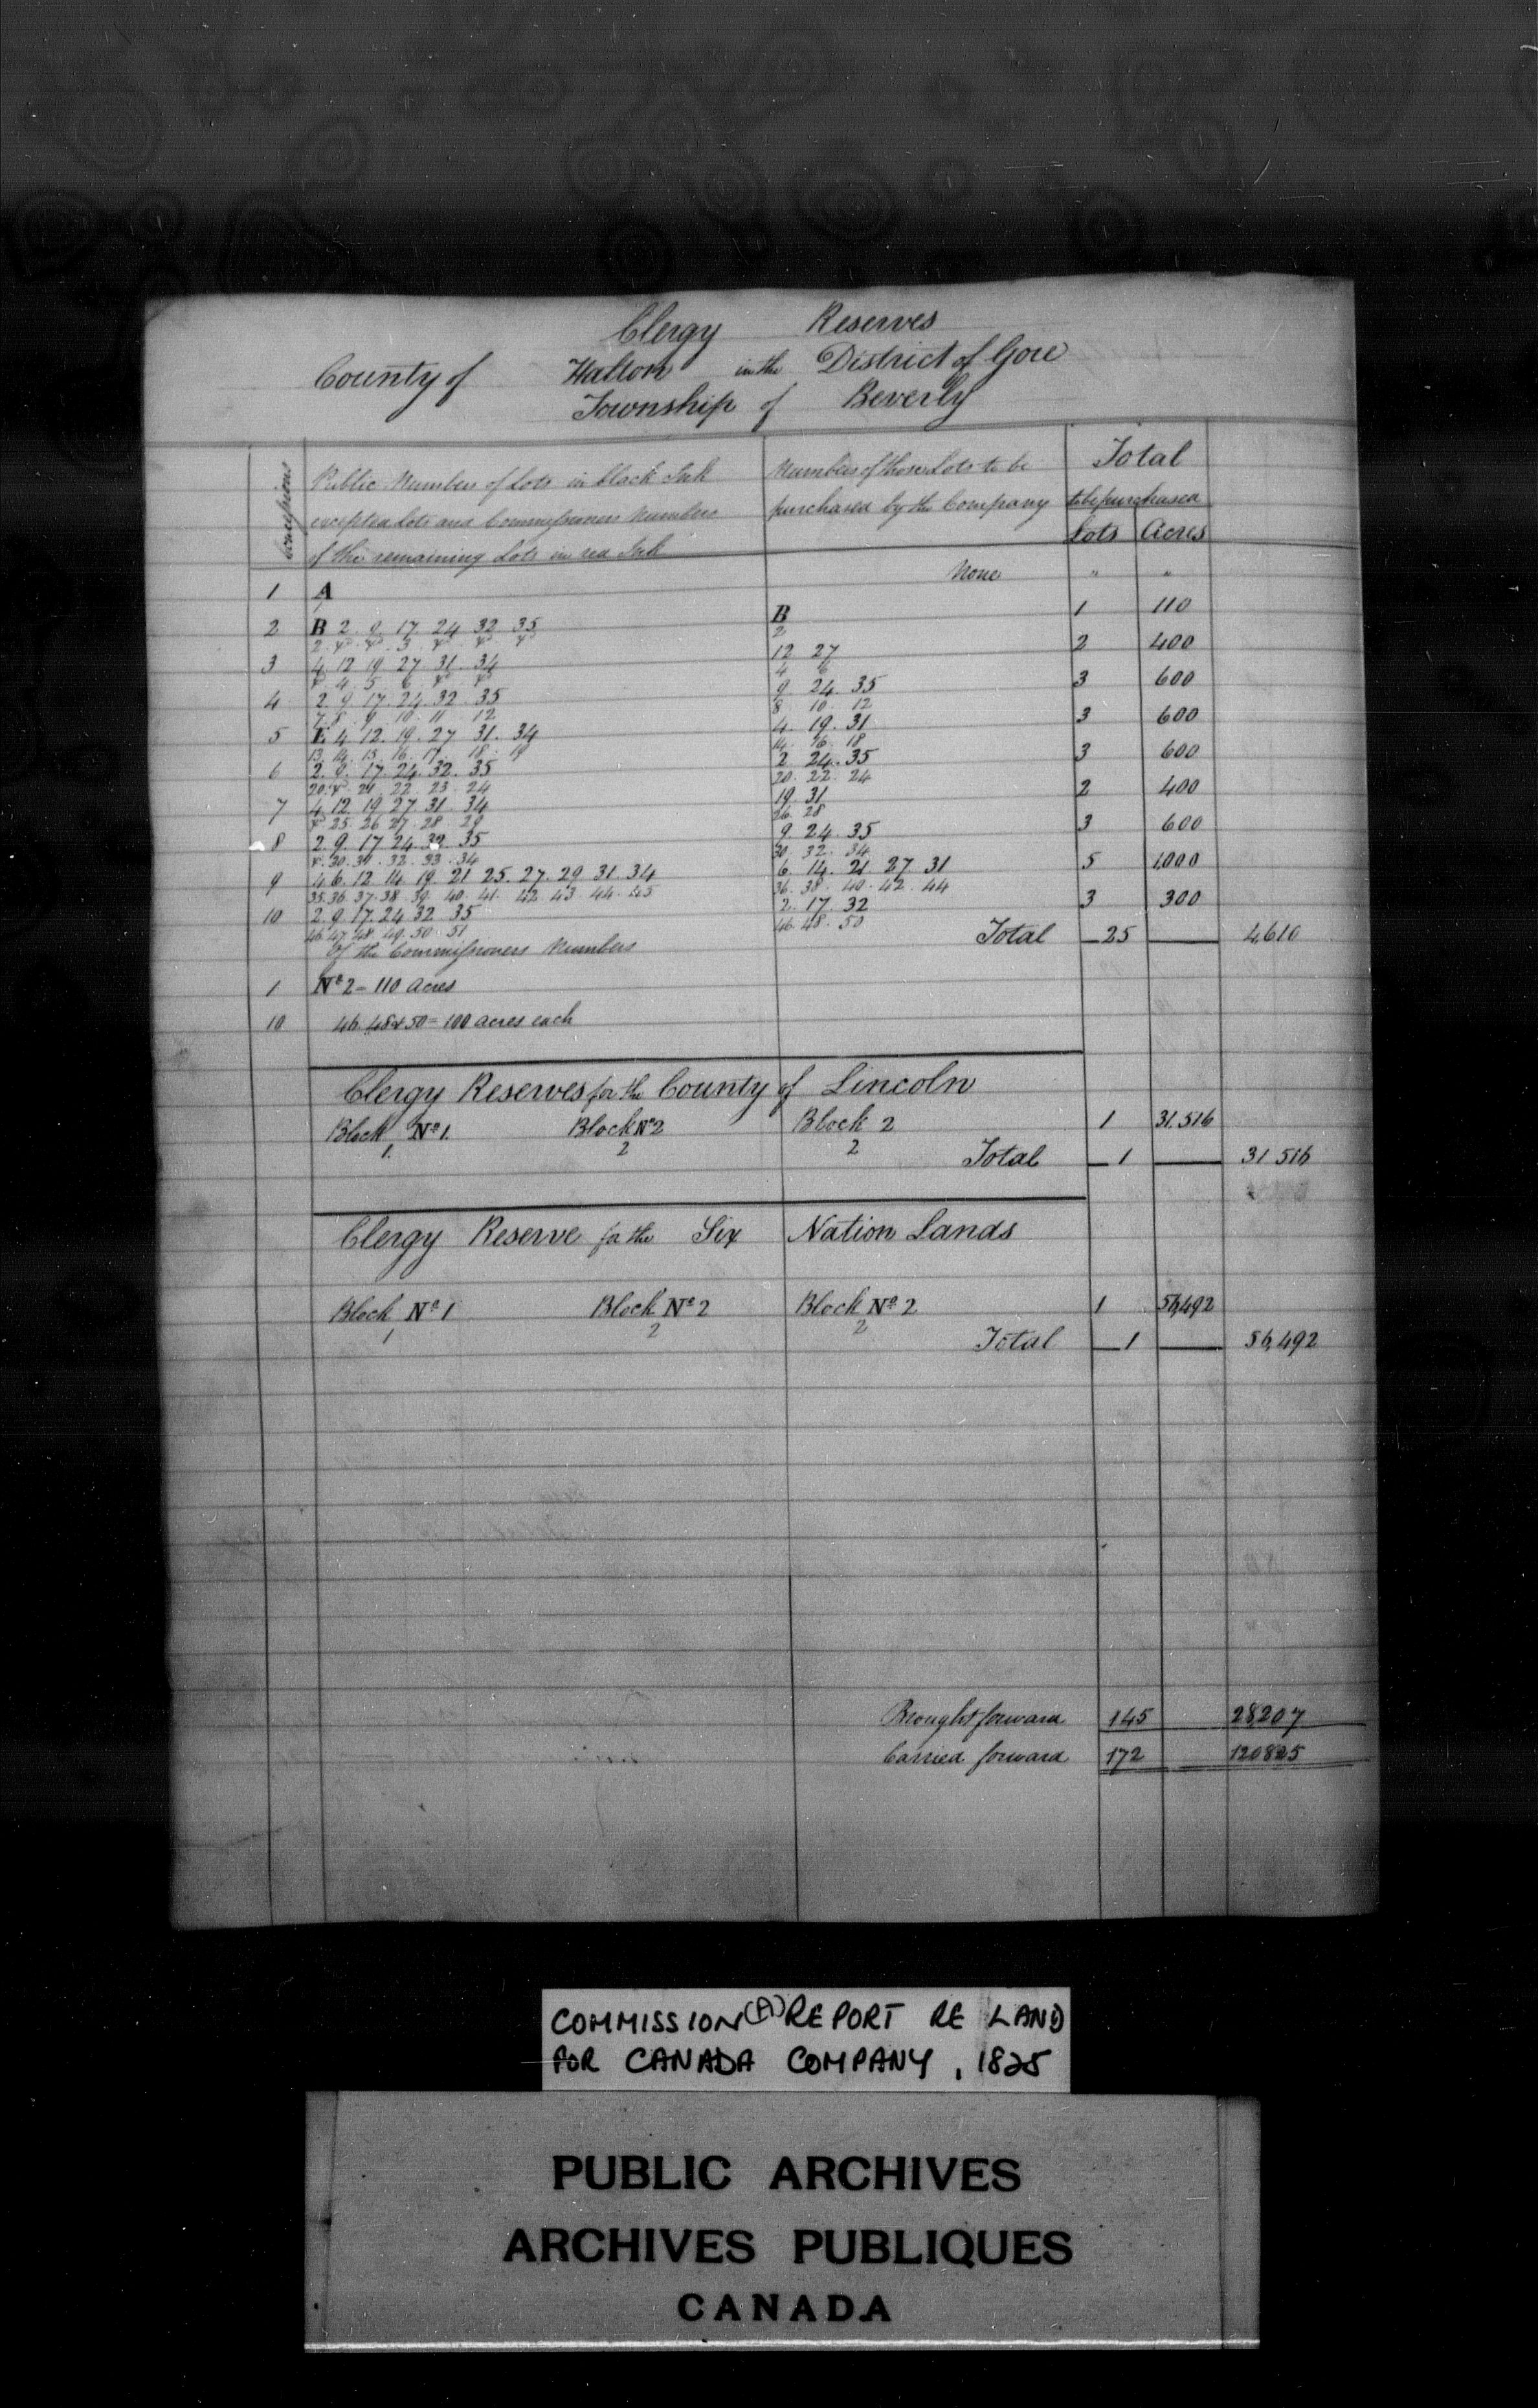 Clergy Reserves
County of Halton in the District of Gore
Township of Beverly
Concessions
Public Number of Lots in black Ink
excepted Lots and Commissioners Numbers
of the remaining Lots in red Ink
Numbers of those Lots to be
purchased by the Company
Total
to be purchased
Lots Acres
1 A None " "
1
2 B 2 9 17 24 32 35 B 1 110
2 3 2
3 4 12 19 27 31 34 12 27 2 400
4 5 6 4 6
4 2 9 17 24 32 35 9 24 35 3 600
7 8 9 10 11 12 8 10 12
5 4 12 19 27 31 34 4 19 31 3 600
13 14 15 16 17 18 19 14 16 18
6 2 9 17 24 32 35 2 24 35 3 600
20 21 22 23 24 20 22 24
7 4 12 19 27 31 34 19 31 2 400
25 26 27 28 29 26 28
8 2 9 17 24 32 35 9 24 35 3 600
30 31 32 33 34 30 32 34
9 4 6 12 14 19 21 25 27 29 31 34 6 14 21 27 31 5 1,000
35 36 37 38 39 40 41 42 43 44 45 36 38 40 42 44
10 2 9 17 24 32 35 2 17 32 3 300
46 47 48 49 50 51 46 48 50
Total 25 4,610
Of the Commissioners Numbers
1 No 2 = 110 Acres
10 46 48 & 50 = 100 acres each
Clergy Reserves for the County of Lincoln
Block No 1. Block No 2 Block 2 1 31.516
1. 2 2
Total 1 31 516
Clergy Reserve for the Six Nation Lands
Block No 1 Block No 2 Block No 2 1 56,492
1 2 2
Total 1 56,492
Brought forward 145 28207
Carried forward 172 120825
COMMISSION(A) REPORT RE LAND
FOR CANADA COMPANY, 1825
PUBLIC ARCHIVES
ARCHIVES PUBLIQUES
CANADA